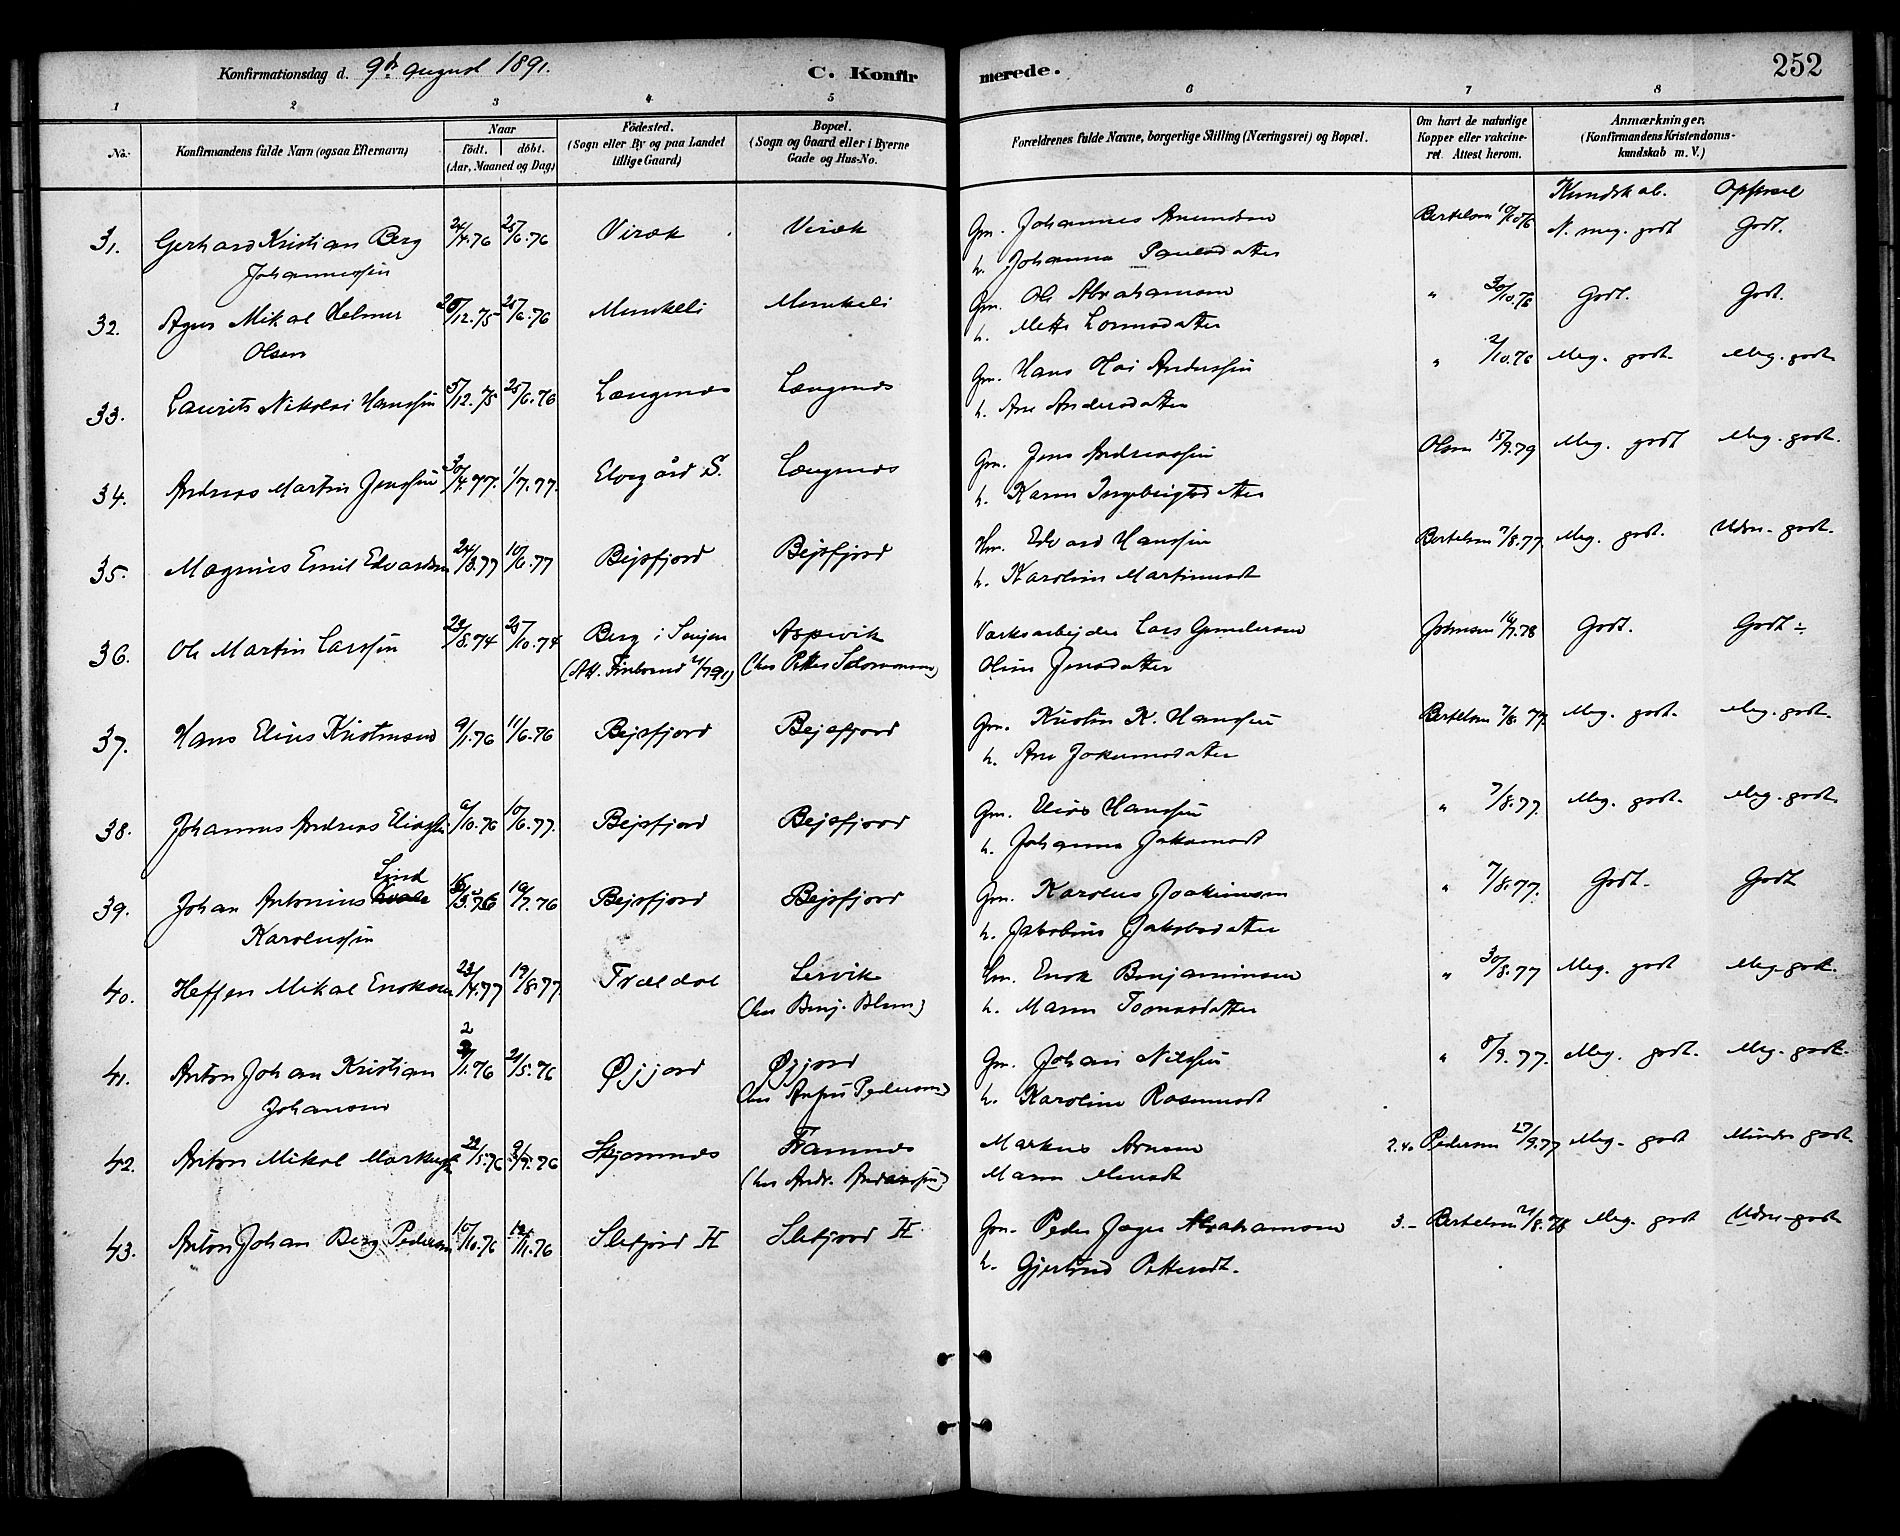 Konfirmationsdag d. 9de august 1891. C. Konfirmerede. 252
1 2 3 4 5 6 7 8
No. Konfirmandens fulde Navn (ogsaa Efternavn) Naar født. døbt. (Aar, Maaned og Dag) Fødested. (Sogn eller By og paa Landet tillige Gaard) Bopæl. (Sogn og Gaard eller i Byerne Gade og Hus-No. Forældrenes fulde Navne, borgerlige Stilling (Næringsvei) og Bopæl. Om havt de naturlige Kopper eller vakcineret. Attest herom. Anmærkninger. (Konfirmandens Kristendomskundskab m. V.)
Kundskab. Opførsel
31. Gerhard Kristian Berg 24/4.76 25/6.76 Viræk Viræk Gm. Johannes Amundsen Bertelsen N. meg. godt Godt.
Johannessen h. Johanna Paulsdatter
32. Agus Mikal Helmer 28/12.75 25/6.76 Munkeli Munkeli Gm. Ole Abrahamsen " 30/10.76 Godt. Godt.
Olsen h. Mette
33. Laurits Nikolai Hanssen 5/12.75 25/6.76 Længnes Længnes Gm. Hans Hoi Anderssen " 2/10.76 Meg. godt. Meg. godt
h. Ane Andersdatter
34. Andreas Martin Jenssen 30/4.77. 1/7.77. Elvegård S. Længnes Gm. Jens Andreassen Olsen 15/9.79 Meg. godt Meg. godt.
h. Karen Ingebrigtsdatter
35. Magnus Emil Edvardsen 24/3.77 10/6.77 Bejsfjord Bejsfjord Hm. Edvard Hanssen Bertelsen 7/8.77. Meg. godt. Udm. godt.
h. Karoline Martinusdt
36. Ole Martin Larssen 22/8.74 25/10.74 Berg i Senjen Aspevik Værksarbejder Lars Gundersen Johnsen 16/7.78 Godt. Godt ÷
(Att. 2/7 91) (hos Petter Salomonsen) Oline Jensdatter
37. Hans Elius Kristensen 9/1.76 11/6.76 Bejsfjord Bejsfjord Gm. Kristen K. Hanssen Bertelsen 7/8. 77. Meg. godt. Meg. godt.
h. Ane Jokumsdatter
38. Johannes Andreas Eliassen 6/10.76 10/6.77. Bejsfjord Bejsfjord Gm. Elias Hanssen " 7/8.77. Meg. godt. Meg. godt
h. Johanna Jakumsdt
Lind
39. Johan Antonius Kvale 16/3.76 10/7.76 Bejsfjord Bejsfjord Gm. Karolus Joakimsen " 7/8.77. Godt. Godt
Karolussen h. Jakobine Jakobsdatter
40. Heffen Mikal Enoksen 23/4.77 19/8.77. Trældal Lervik Gm. Enok Benjaminsen " 30/8.77 Meg. godt Meg. godt.
(hos Benj. Blom) h. Maren Tomasdatter
41. Anton Johan Kristian 2/1.76 21/5.76 Øjjord Øjjord Gm. Johan Nilssen " 8/9.77. Meg. godt. Meg. godt.
Johansen (hos Pedersen) h. Karoline Rasmusdt
42. Anton Mikal Markussen 22/5.76 9/7.76 Skjomnes Framnes Markus Arnesen 2.40 Pedersen 27/9.77 Meg. godt Mindre godt.
(hos Andr. Anderssen) Maren
43. Anton Johan Berg Pedersen 10/10.76 12/11.76 Sletjord H Sletjord H Gm. Peder Jæger Abrahamsen 3.- Bertelsen 21/8.78 Meg. godt Udm. godt
h. Gjertrud Pettersdt.